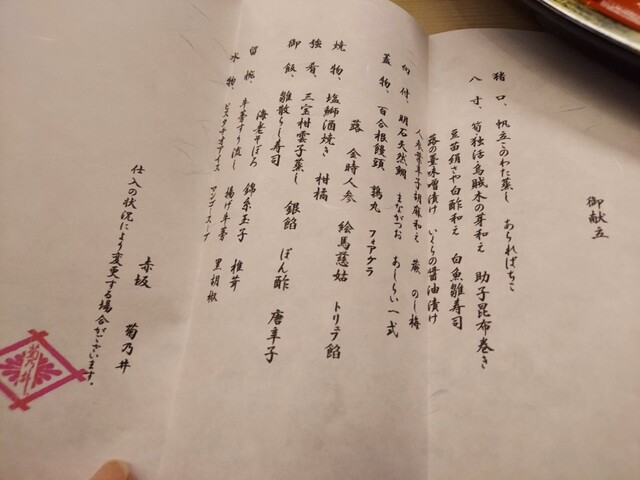 御献立
猪口、帆立このわた蒸し あらればちこ
八寸、筍独活烏賊木の芽和え 助子昆布巻き
豆苗絹さや白酢和え 白魚雛寿司
蕗の薹味噌漬け いくらの醤油漬け
人参葉辛子胡麻和え 蕨 のし梅
向付、明石天然鯛 まながつお あしらい一式
蓋物、百合根饅頭 鶉丸 フォアグラ
蕗 金時人参 絵馬慈姑 トリュフ餡
焼物、塩鰤酒焼き 柑橘
強肴、三宝柑雲子蒸し 銀餡 ぽん酢 唐辛子
御飯、雛散らし寿司
海老そぼろ 錦糸玉子 椎茸
留椀、牛蒡すり流し 揚げ牛蒡 黒胡椒
水物、ピスタチオアイス マンゴースープ
赤坂 菊乃井
仕入の状況により変更する場合がございます。
菊乃井